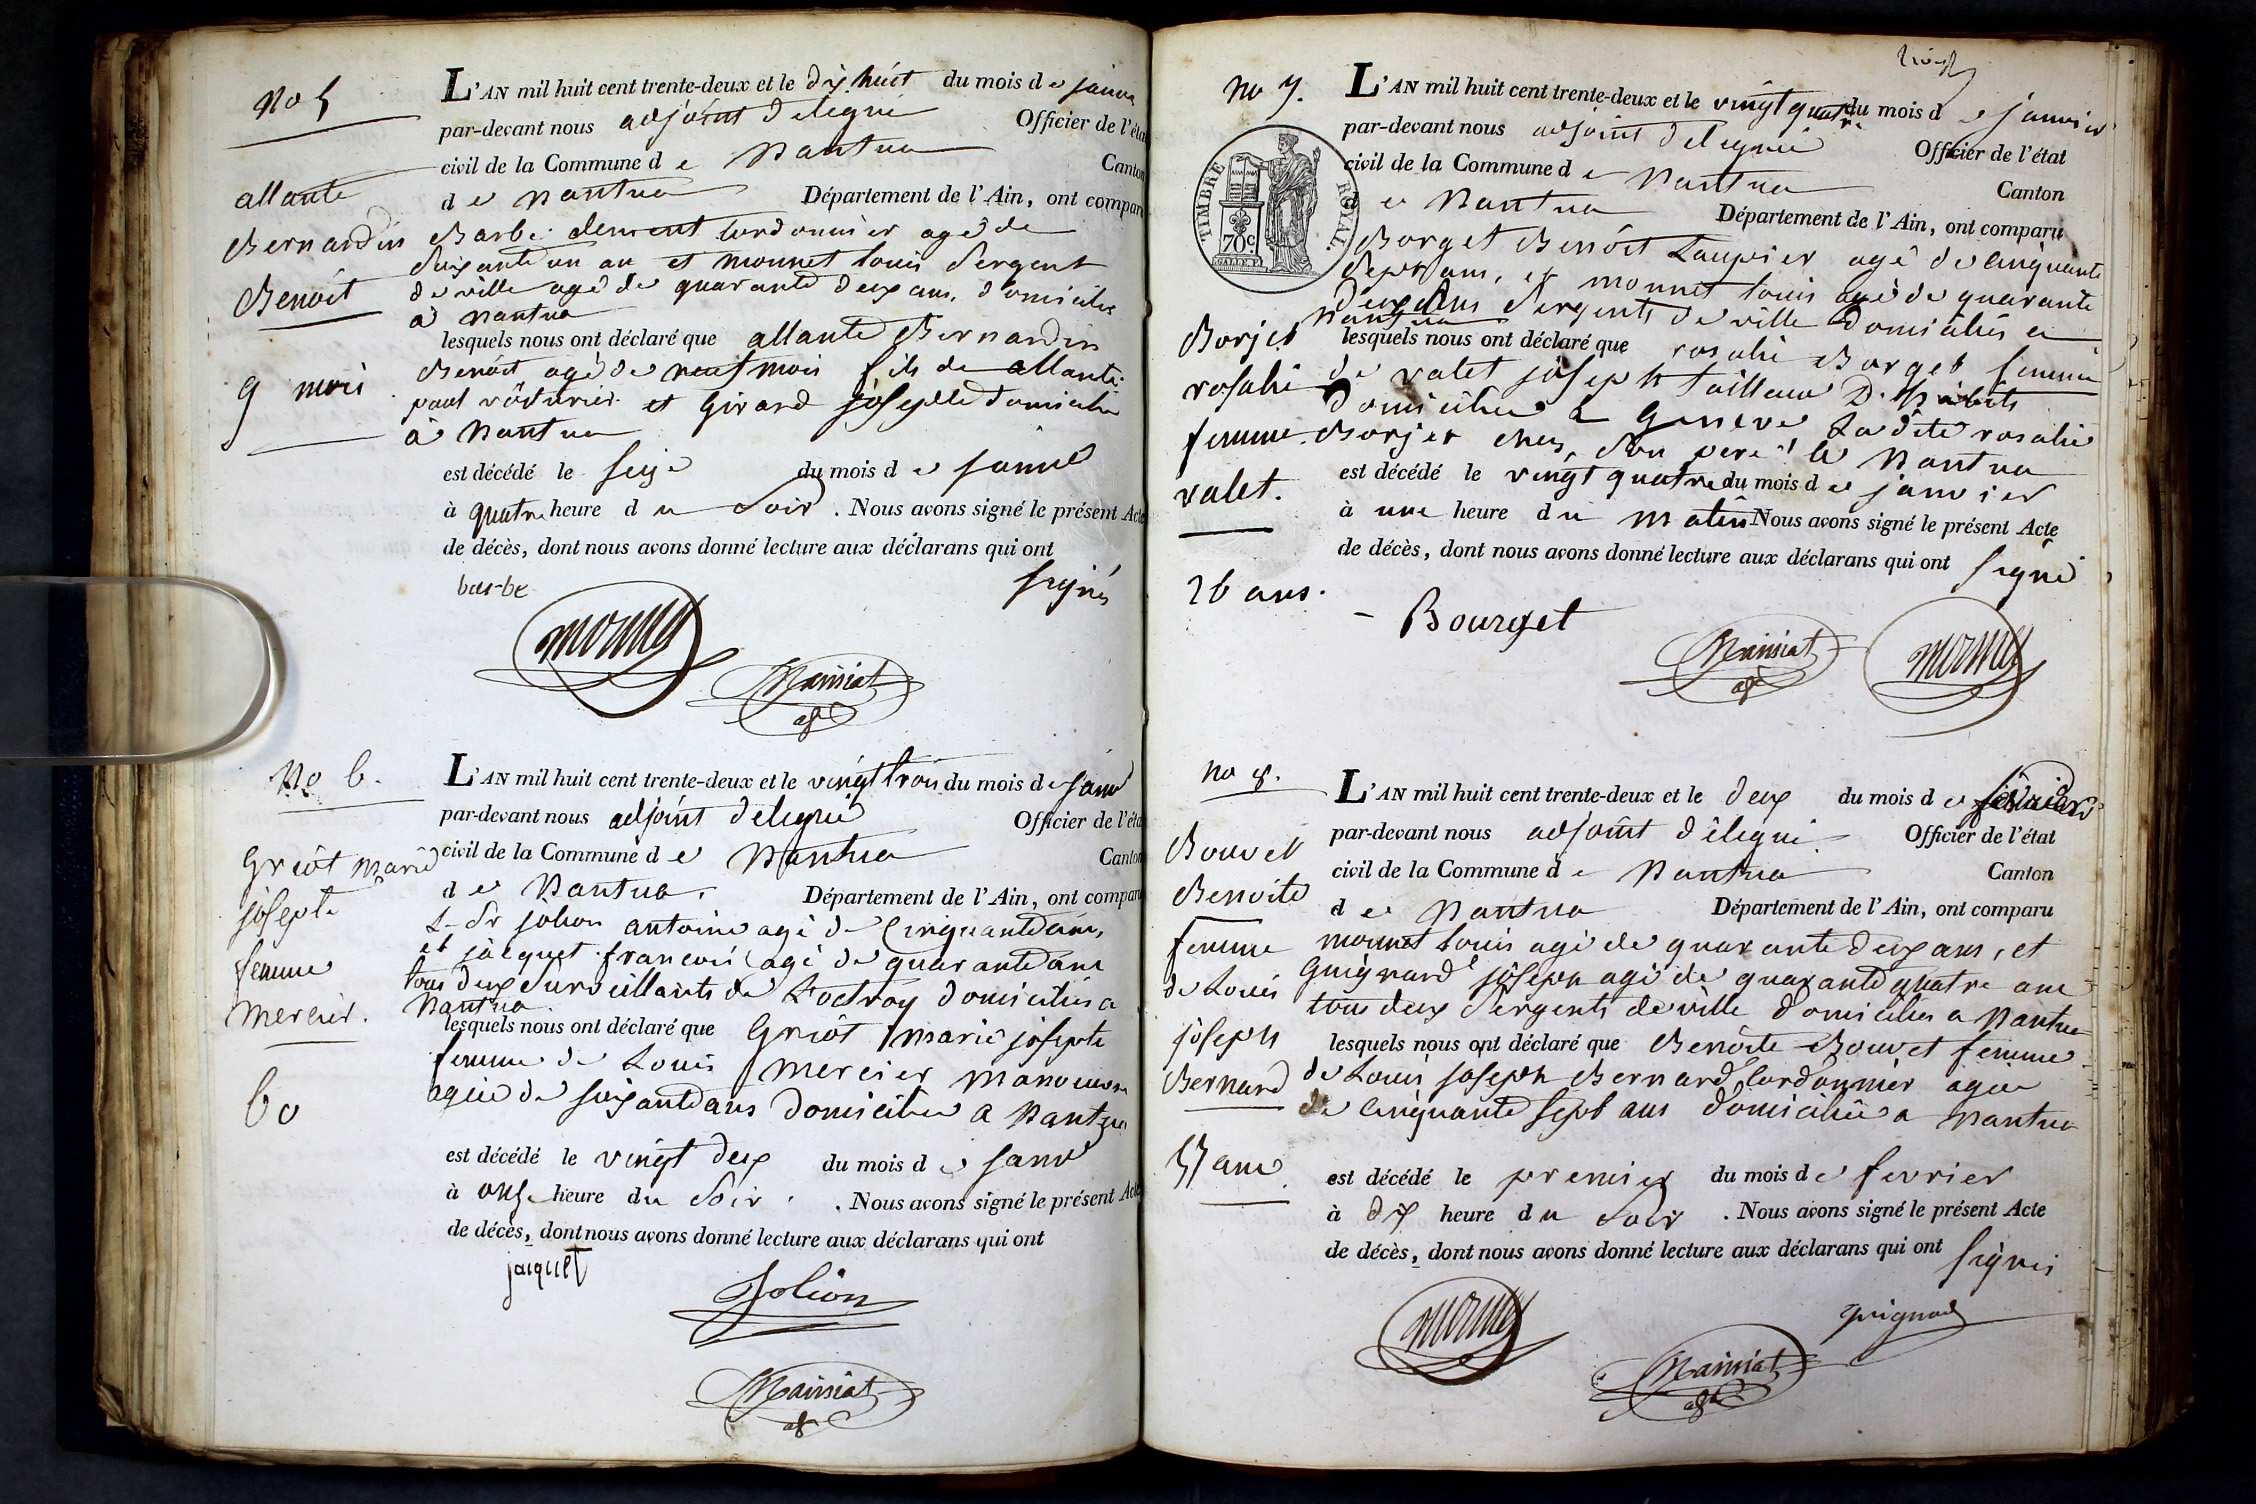 No 5
allante
Bernardin
Benoit
9 mois
L'AN mil huit cent trente-deux et le dix huit du mois de janv
par-devant nous adjoint délégué Officier de l'éta
civil de la Commune de Nantua Canton
de Nantua Département de l'Ain, ont compar
Barbe clement cordonnier agé de
soixante un an et monnet louis sergent
de ville agé de quarante deux ans, domiciliés
à nantua
lesquels nous ont déclaré que allante Bernardin
Benoit agé de neuf mois fils de allante
paul voiturier et Girard josephte domicilié
à Nantua
est décédé le seize du mois de janvr
à quatre heure du soir. Nous avons signé le présent Acte
de décès, dont nous avons donné lecture aux déclarans qui ont
signés
barbe
monnet
Mainiat
adt
No 6.
Griot marie
josephte
femme
mercier.
60
L'AN mil huit cent trente-deux et le vingt trois du mois de janvr
par-devant nous adjoint délégué Officier de l'éta
civil de la Commune de Nantua Canton
de Nantua. Département de l'Ain, ont comparu
Sr jolion antoine agé de Cinquante ans,
et jacquet francois agé de quarante ans
tous deux surveillants de L'octroy domiciliés a
Nantua.
lesquels nous ont déclaré que Griot marie josephte
femme de Louis mercier manoeuvre
agée de soixante ans domiciliée a Nantua
est décédé le vingt deux du mois de janvr
à onze heure du soir. Nous avons signé le présent Acte
de décès, dont nous avons donné lecture aux déclarans qui ont
jacquet
Jolion
Mainiat
adt
no 7.
TIMBRE ROYAL.
70c
Borjet
rosalie
femme
valet.
26 ans.
L'AN mil huit cent trente-deux et le vingt quatre du mois de janvier
par-devant nous adjoint délégué Officier de l'état
civil de la Commune de Nantua Canton
de Nantua Département de l'Ain, ont comparu
Borget Benoit agé de cinquante
sept ans, et monnet louis agé de quarante
deux ans sergents de ville domiciliés a
Nantua
lesquels nous ont déclaré que rosalie Borget femme
de valet joseph tailleur D'habits
domiciliée a Geneve Ladite rosalie
Borjet chez son pere a Nantua
est décédé le vingt quatre du mois de janvier
à une heure du matin Nous avons signé le présent Acte
de décès, dont nous avons donné lecture aux déclarans qui ont signé
Bourget
Mainiat
adt
monnet
no 8.
Bouvet
Benoite
femme
de Louis
joseph
Bernard
57 ans.
L'AN mil huit cent trente-deux et le deux du mois de février
par-devant nous adjoint délégué. Officier de l'état
civil de la Commune de Nantua Canton
de Nantua Département de l'Ain, ont comparu
monnet louis agé de quarante deux ans, et
Guignard joseph agé de quarante quatre ans
tous deux sergents de ville domiciliés a Nantua
lesquels nous ont déclaré que Benoite Bouvet femme
de Louis joseph Bernard Cordonnier agée
de cinquante sept ans domiciliée a Nantua
est décédé le premier du mois de fevrier
à dix heure du soir. Nous avons signé le présent Acte
de décès, dont nous avons donné lecture aux déclarans qui ont signés
monnet
Guignard
Mainiat
adt